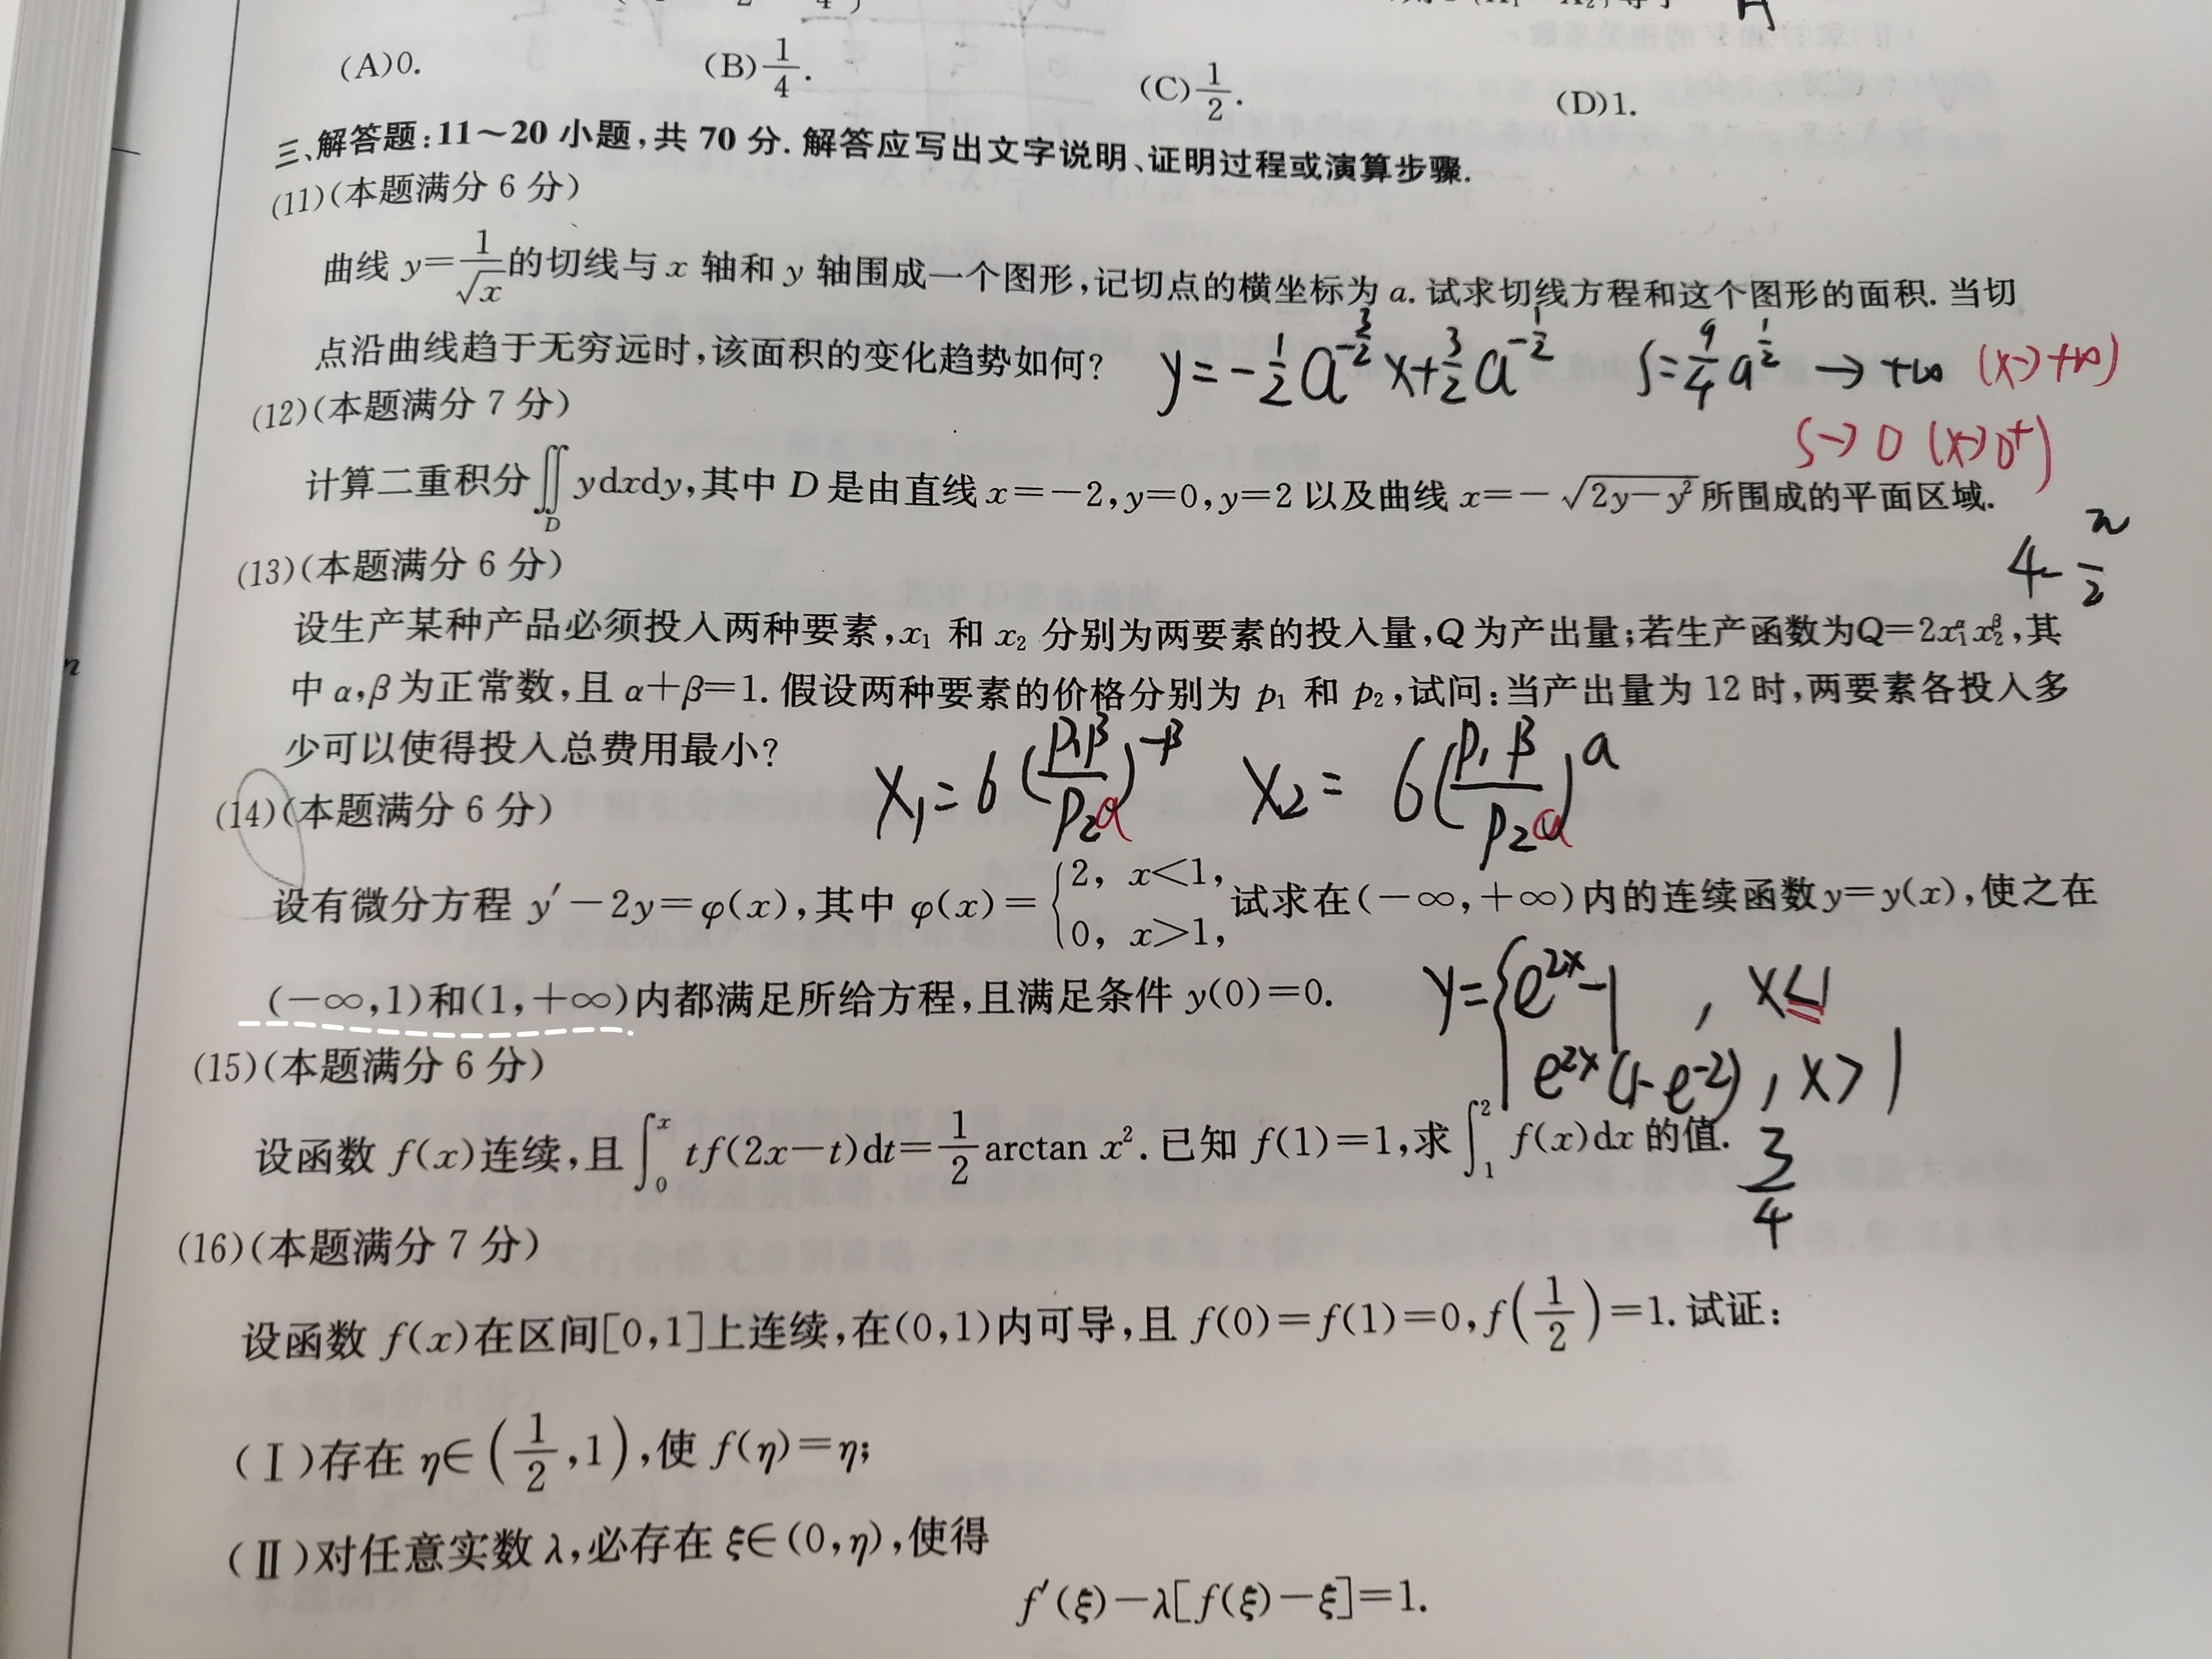 (A)0.
(B)1/4.
(C)1/2.
(D)1.
三、解答题:11～20 小题,共 70 分. 解答应写出文字说明、证明过程或演算步骤.
(11)(本题满分 6 分)
曲线 y=1/√x的切线与 x 轴和 y 轴围成一个图形,记切点的横坐标为 a. 试求切线方程和这个图形的面积. 当切
点沿曲线趋于无穷远时,该面积的变化趋势如何? y=-1/2 a^(-3/2) x+3/2 a^(-1/2) S=9/4 a^(1/2) → +∞ (x→+∞)
S→0 (x→0⁺)
(12)(本题满分 7 分)
计算二重积分∬_D ydxdy,其中 D 是由直线 x=-2,y=0,y=2 以及曲线 x=-√(2y-y²)所围成的平面区域.
4-π/2
(13)(本题满分 6 分)
设生产某种产品必须投入两种要素,x₁ 和 x₂ 分别为两要素的投入量,Q 为产出量;若生产函数为Q=2x₁^α x₂^β,其
中 α,β 为正常数,且 α+β=1. 假设两种要素的价格分别为 p₁ 和 p₂,试问:当产出量为 12 时,两要素各投入多
少可以使得投入总费用最小?
X₁=6(P₁β/P₂a)^(-β) X₂=6(P₁β/P₂a)^a
(14)(本题满分 6 分)
设有微分方程 y′-2y=φ(x),其中 φ(x)={2, x<1, 0, x>1, 试求在(-∞,+∞)内的连续函数y=y(x),使之在
(-∞,1)和(1,+∞)内都满足所给方程,且满足条件 y(0)=0.
y={e^(2x)-1, x≤1
e^(2x)(1-e^(-2)), x>1
(15)(本题满分 6 分)
设函数 f(x)连续,且∫₀ˣ tf(2x-t)dt=1/2 arctan x². 已知 f(1)=1,求∫₁² f(x)dx 的值. 3/4
(16)(本题满分 7 分)
设函数 f(x)在区间[0,1]上连续,在(0,1)内可导,且 f(0)=f(1)=0,f(1/2)=1. 试证:
(Ⅰ)存在 η∈(1/2,1),使 f(η)=η;
(Ⅱ)对任意实数 λ,必存在 ξ∈(0,η),使得
f′(ξ)-λ[f(ξ)-ξ]=1.